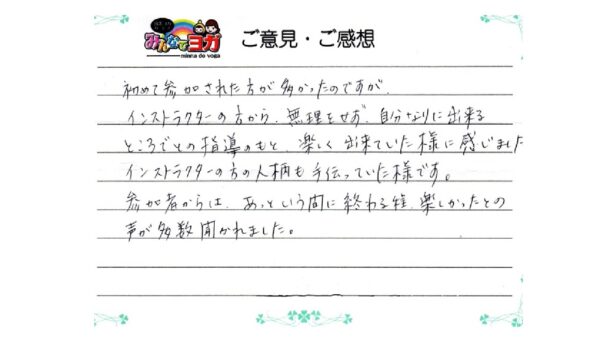 みんなでヨガ
minna de yoga
ご意見・ご感想
初めて参加された方が多かったのですが、
インストラクターの方から、無理をせず、自分なりに出来る
ところでとの指導のもと、楽しく出来ていた様に感じました
インストラクターの方の人柄も手伝っていた様です。
参加者からは、あっという間に終わる程、楽しかったとの
声が多数聞かれました。